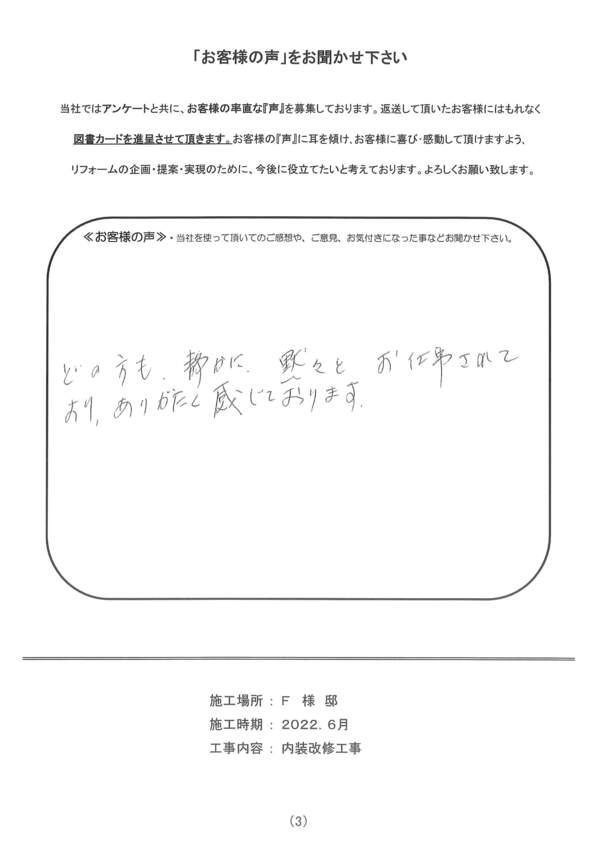 「お客様の声」をお聞かせ下さい
当社ではアンケートと共に、お客様の率直な『声』を募集しております。返送して頂いたお客様にはもれなく
図書カードを進呈させて頂きます。お客様の『声』に耳を傾け、お客様に喜び・感動して頂けますよう、
リフォームの企画・提案・実現のために、今後に役立てたいと考えております。よろしくお願い致します。
≪お客様の声≫・当社を使って頂いてのご感想や、ご意見、お気付きになった事などお聞かせ下さい。
どの方も、静かに、黙々と お仕事されて
おり、ありがたく感じております。
施工場所 : F 様 邸
施工時期 : 2022.6月
工事内容 : 内装改修工事
(3)